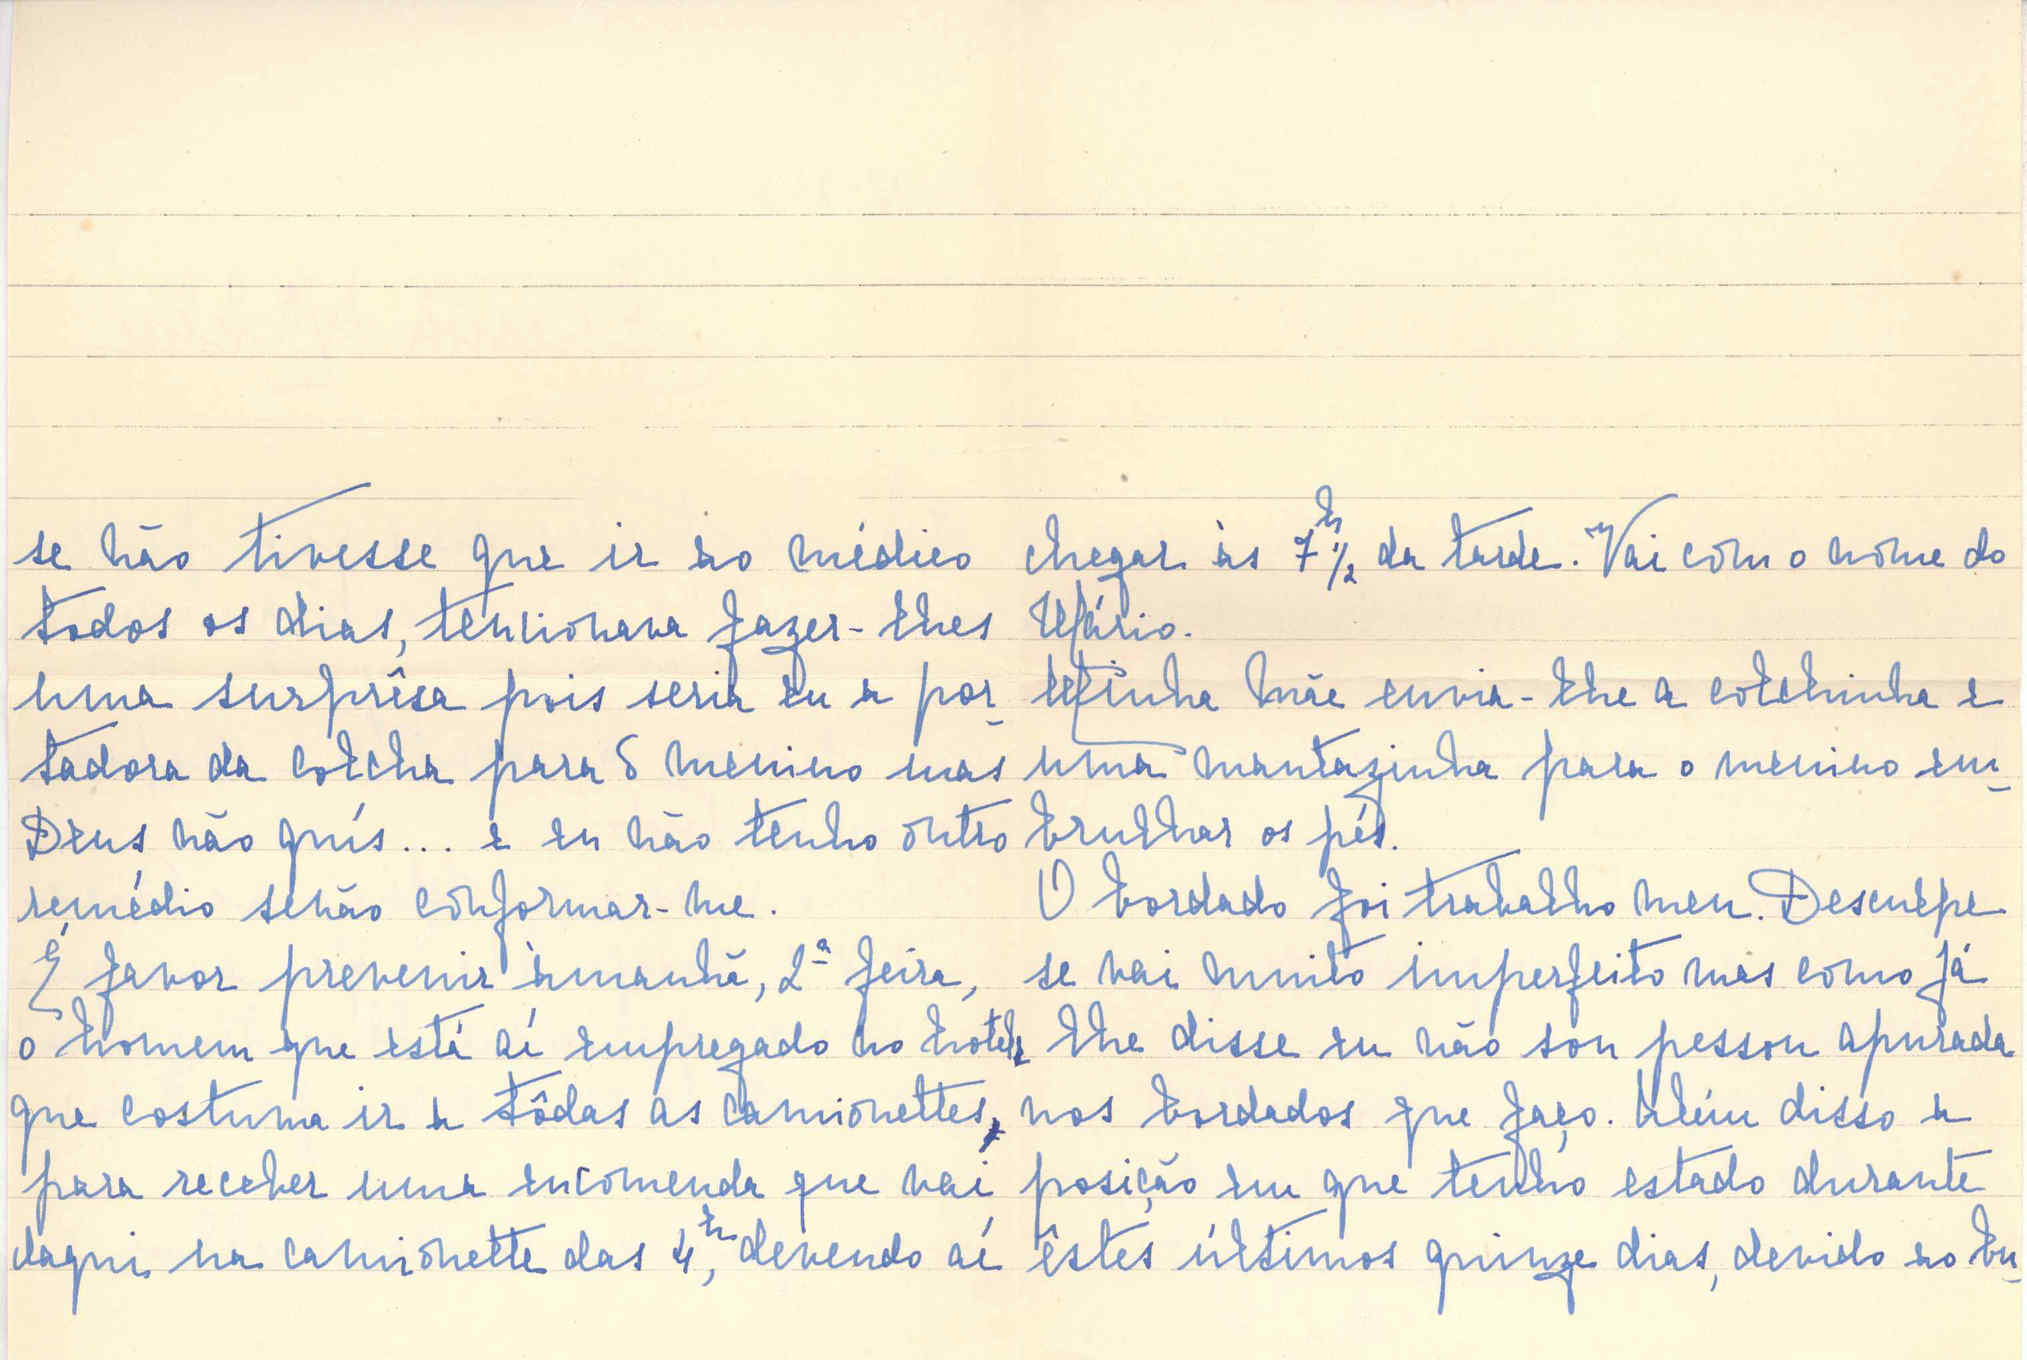 se não tivesse que ir ao médico
todos os dias, tencionava fazer-lhes
uma surprêsa pois seria eu a por-
tadora da colcha para o menino mas
Deus não quís... e eu não tenho outro
remédio senão conformar-me.
É favor prevenir àmanhã, 2ª feira,
o homem que está aí empregado no hotel e
que costuma ir a tôdas as camionettes,
para receber uma encomenda que vai
daqui na camionette das 4h, devendo aí
chegar às 7h 1/2 da tarde. Vai com o nome do
Mário.
Minha mãe envia-lhe a colchinha e
uma mantazinha para o menino em-
brulhar os pés.
O bordado foi trabalho meu. Desculpe
se vai muito imperfeito mas como já
lhe disse eu não sou pessoa apurada
nos bordados que faço. Além disso a
posição em que tenho estado durante
êstes últimos quinze dias, devido ao bu-